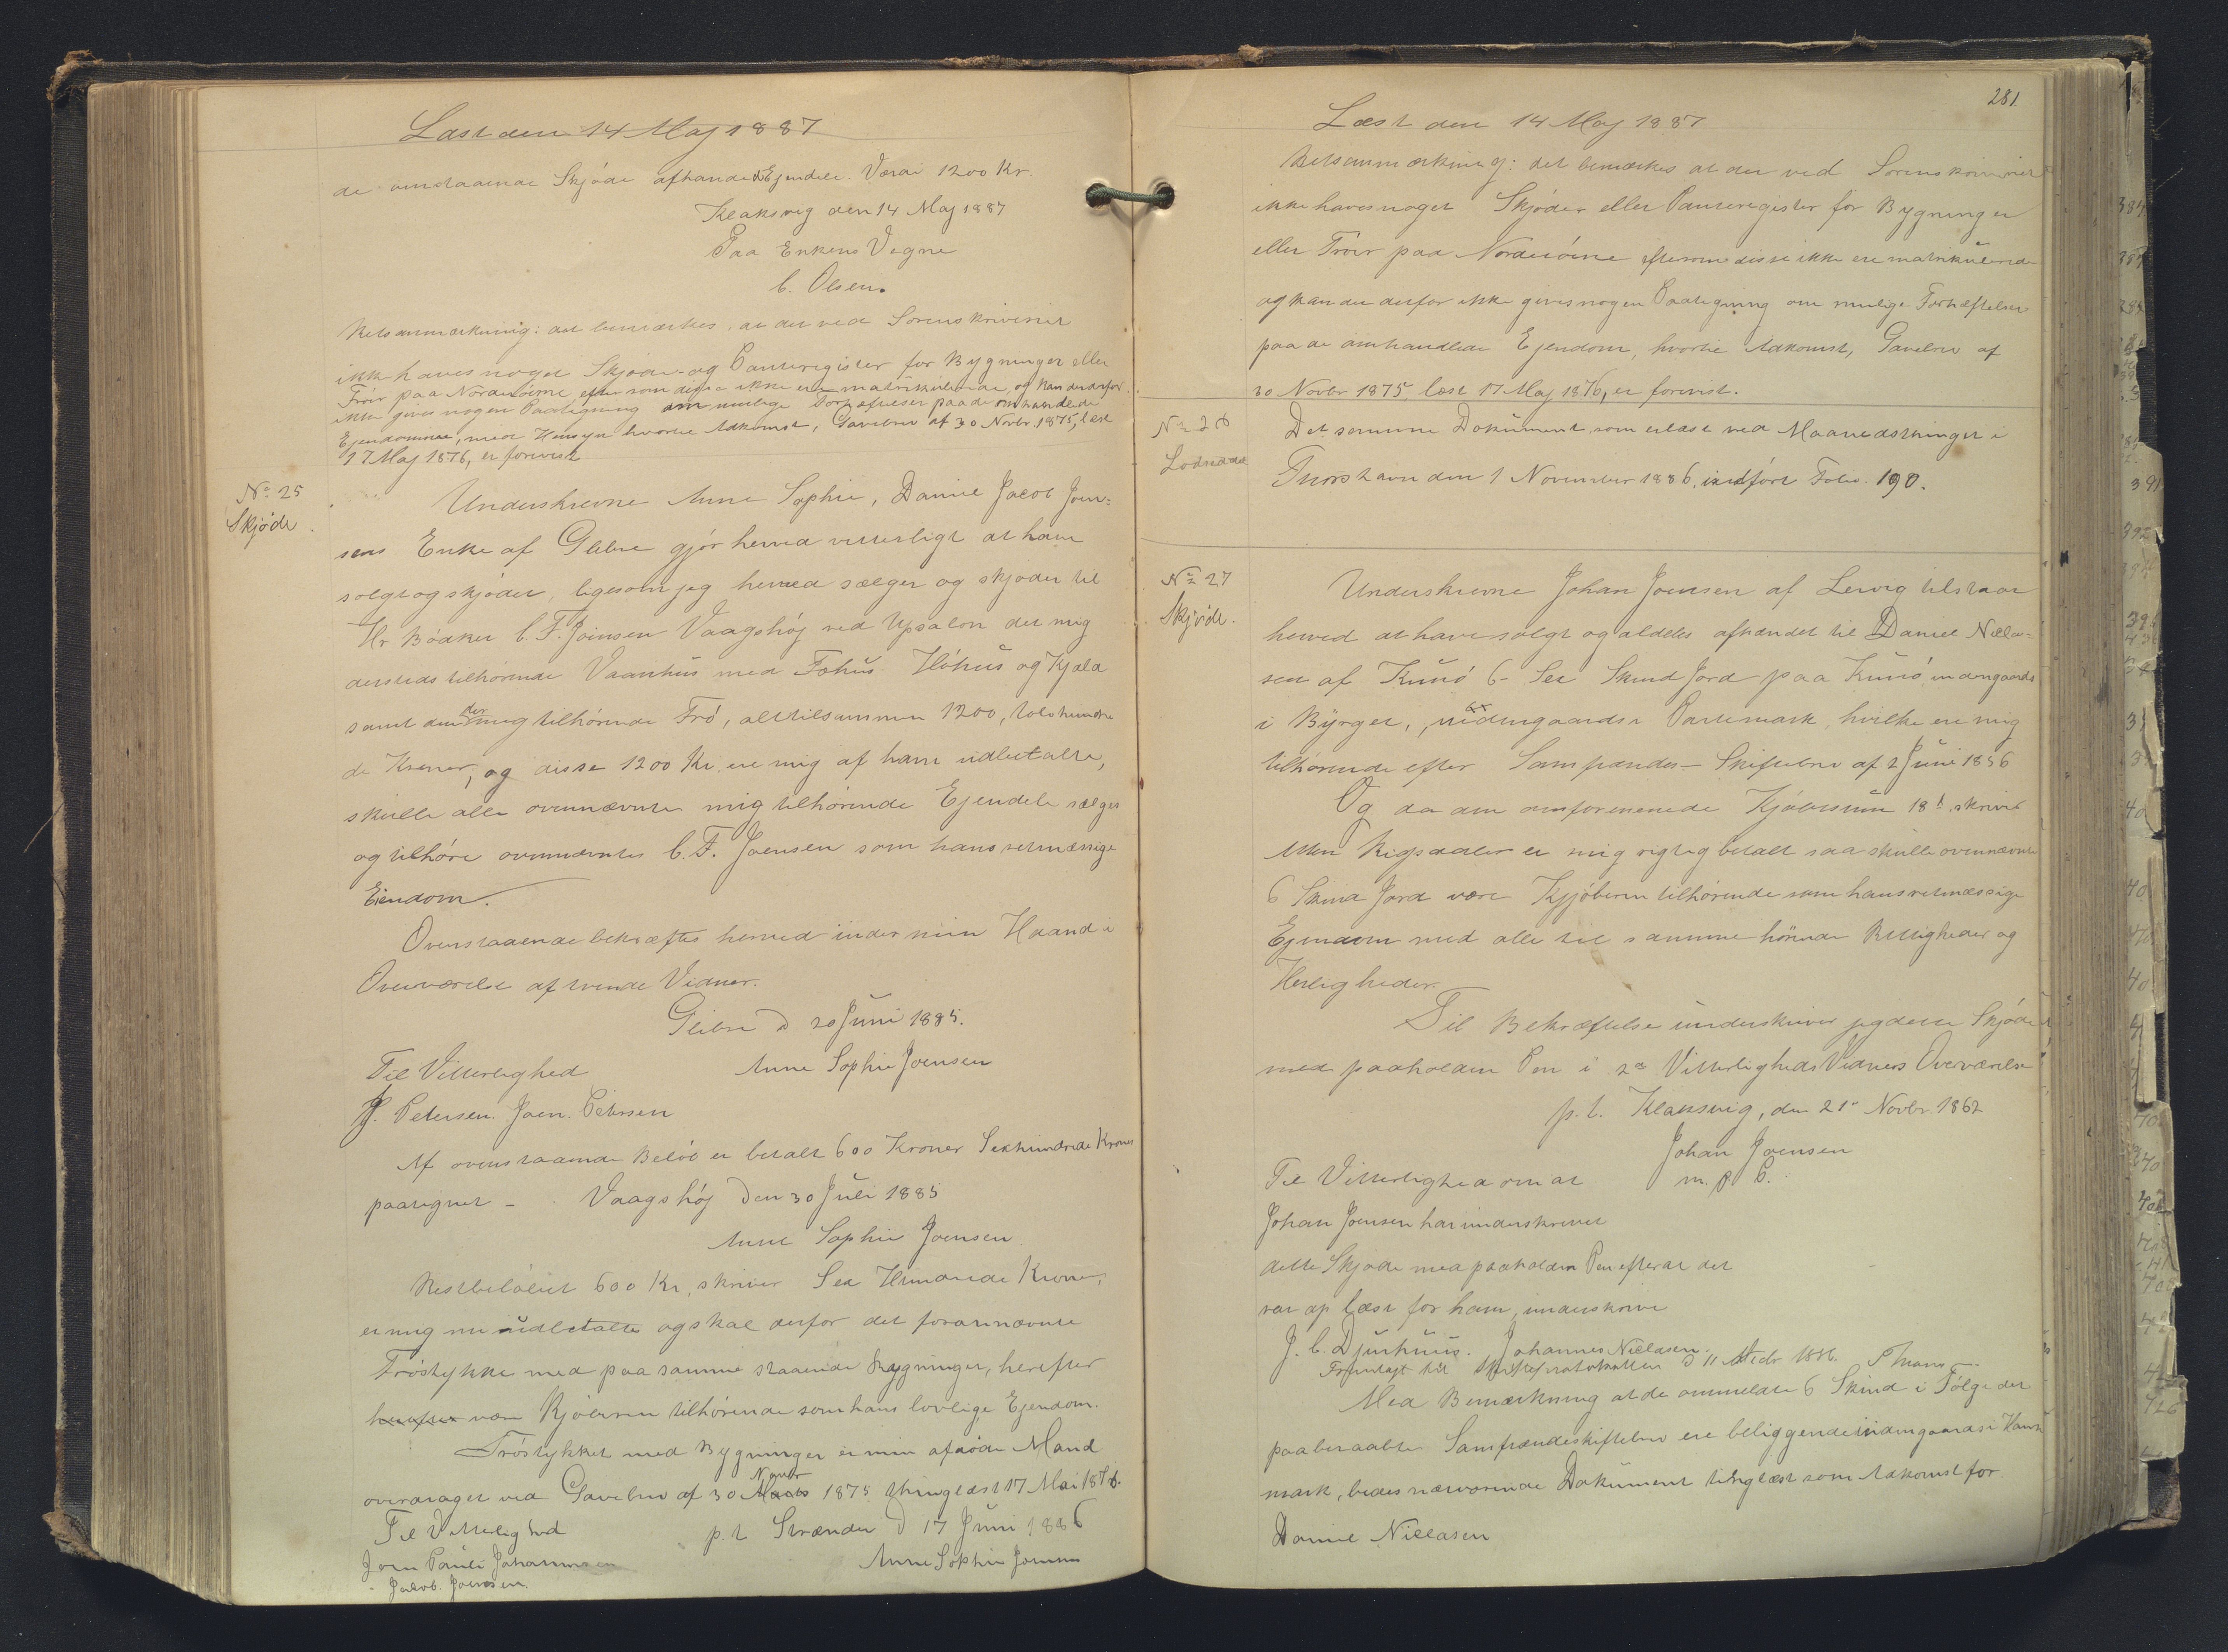 Læst den 14 Maj 1887
de omstaaende Skjøde afhændede Ejendele. Værdi 1200 Kr.
Klaksvig den 14 Maj 1887
Paa Enkens Vegne
C. Olsen.
Retsanmærkning: det bemærkes, at der ved Sorenskriveriet
ikke haves noget Skjøde- og Panteregister for Bygninger eller
Trøer paa Norderøerne eftersom disse ikke ere matrikulerede, og kan derfor
ikke gives nogen Paategning om mulige Forhæftelser paa de omhandlede
Ejendomme, med Hensyn hvortil Adkomst, Gavebrev af 30 Novbr. 1875, læst
17 Maj 1876, er forevist
No. 25
Skjøde.
Underskrevne Anne Sophie, Daniel Jacob Joen-
sens Enke af Glibre gjør herved vitterligt at have
solgt og skjødet, ligesom jeg herved sælger og skjøder til
Hr Bødker C. F. Joensen Vaagshøj ved Upsalon det mig
dersteds tilhørende Vaanhus med Fohus Høhus og Kjeld
samt den der mig tilhørende Trø, alt tilsammen 1200, tolvhundre
de Kroner, og disse 1200 Kr. ere mig af ham udbetalte,
skulle alle ovennævnte mig tilhørende Ejendele sælges
og tilhøre ovennævnte C. F. Joensen som hans retmæssige
Eiendom.
Ovenstaaende bekræftes herved under min Haand i
Overværelse af tvende Vidner.
Glibre d 20 Juni 1885.
Til Vitterlighed Anne Sophie Joensen
J. Petersen. Joen. Petersen
Af ovenstaaende Beløb er betalt 600 Kroner Sexhundrede Kroner
paategnet - Vaagshøj Den 30 Juli 1885
Anne Sophie Joensen
Restbeløbet 600 Kr, skriver Sex Hundrede Kroner,
er mig nu udbetalte og skal derfor det forannævnte
Trøstykke med paa samme staaende Bygninger, herefter
herefter være Kjøberen tilhørende som hans lovlige Ejendom.
Trøstykket med Bygninger er min afdøde Mand
overdraget ved Gavebrev af 30 Marts Novbr 1875 thinglæst 17 Mai 1876.
Til Vitterlighed p. t Strænder d 17 Juni 1886
Joen Pauli Johannesen Anne Sophie Joensen
Jacob. Joensen.
281.
Læst den 14 Maj 1887
Retsanmærkning: det bemærkes at der ved Sorenskriveriet
ikke haves noget Skjøde- eller Panteregister for Bygninger
eller Trøer paa Norderøerne eftersom disse ikke ere matrikulerede
og kan der derfor ikke gives nogen Paategning om mulige Forhæftelser
paa de omhandlede Ejendom, hvortil Adkomst, Gavebrev af
30 Novbr 1875 læst 17 Maj 1876, er forevist.
No. 26
Lodseddel
Det samme Dokument som er læst ved Maanedsthinget i
Thorshavn den 1 November 1886, indført Folio 190.
No. 27
Skjøde.
Underskrevne Johan Joensen af Lervig tilstaar
herved at have solgt og aldeles afhændet til Daniel Niela-
sen af Kunø 6 - Sex Skind Jord paa Kunø indengaards
i Byrget, udengaards i Partemark, hvilke ere mig
tilhørende efter Samfrænde-Skiftebrev af 2 Juni 1856
Og da den omforenede Kjøbesum 18 skriver
Atten Rigsdaler er mig rigtig betalt saa skulle ovennævnte
6 Skind Jord være Kjøberen tilhørende som hans retmæssige
Ejendom med alle til samme hørende Rettigheder og
Herligheder.
Til Bekræftelse underskriver jeg dette Skjøde
med paaholden Pen i 2de Vitterligheds Vidners Overværelse
p. t. Klaksvig, den 21de Novbr. 1862
Johan Joensen
Til Vitterlighed om at m. p. P.
Johan Joensen har underskrevet
dette Skjøde med paaholden Pen efterat det
var op læst for ham, underskrive
J. C. Djurhuus. Johannes Nielasen.
Fremlagt til Skifteprotokollen d 11 1886.
Med Bemærkning at de ommeldte 6 Skind i Følge det
paaberaabte Samfrændeskiftebrev ere beliggende indengaards i
mark, bedes nærværende Dokument tinglæst som Adkomst for
Daniel Nielasen